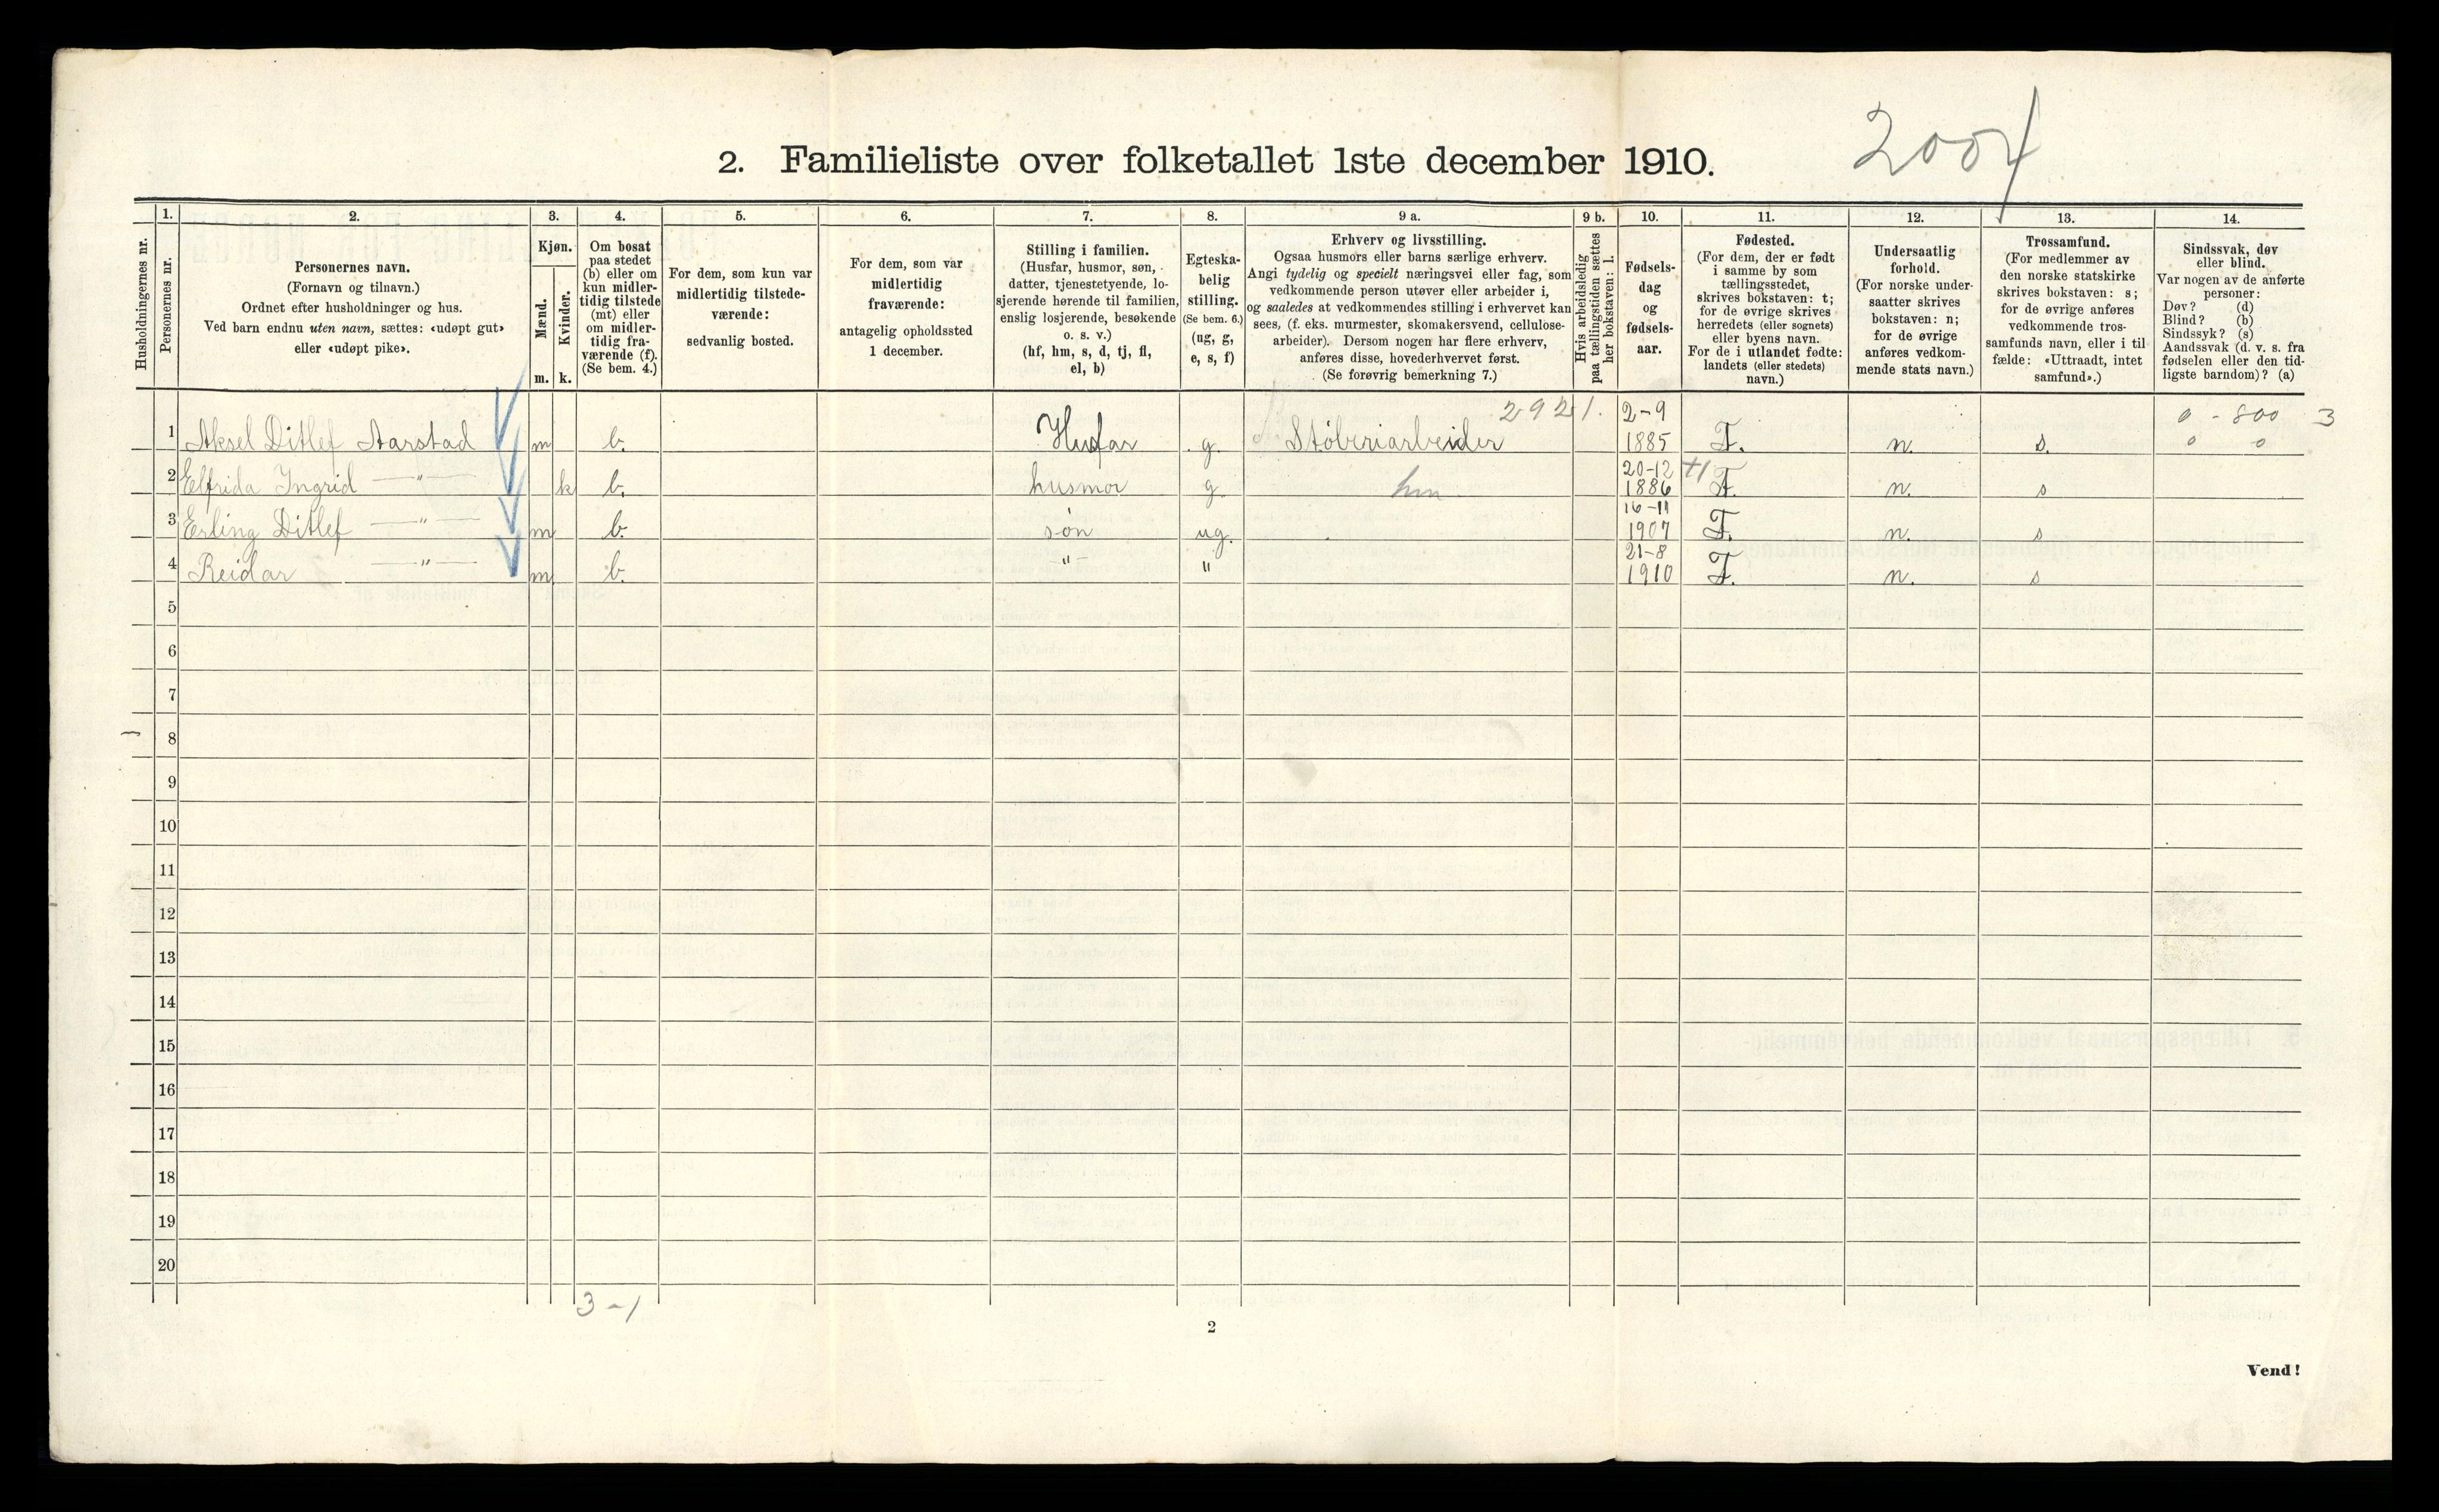 2004
2. Familieliste over folketallet 1ste december 1910.
1. 2. 3. 4. 5. 6. 7. 8. 9 a. 9 b. 10. 11. 12. 13. 14.
Husholdningernes nr.
Personernes nr.
Personernes navn.
(Fornavn og tilnavn.)
Ordnet efter husholdninger og hus.
Ved barn endnu uten navn, sættes: «udøpt gut»
eller «udøpt pike».
Kjøn.
Mænd.
m.
Kvinder.
k.
Om bosat
paa stedet
(b) eller om
kun midler-
tidig tilstede
(mt) eller
om midler-
tidig fra-
værende (f).
(Se bem. 4.)
For dem, som kun var
midlertidig tilstede-
værende:
sedvanlig bosted.
For dem, som var
midlertidig
fraværende:
antagelig opholdssted
1 december.
Stilling i familien.
(Husfar, husmor, søn,
datter, tjenestetyende, lo-
sjerende hørende til familien,
enslig losjerende, besøkende
o. s. v.)
(hf, hm, s, d, tj, fl,
el, b)
Egteska-
belig
stilling.
(Se bem. 6.)
(ug, g,
e, s, f)
Erhverv og livsstilling.
Ogsaa husmors eller barns særlige erhverv.
Angi tydelig og specielt næringsvei eller fag, som
vedkommende person utøver eller arbeider i,
og saaledes at vedkommendes stilling i erhvervet kan
sees, (f. eks. murmester, skomakersvend, cellulose-
arbeider). Dersom nogen har flere erhverv,
anføres disse, hovederhvervet først.
(Se forøvrig bemerkning 7.)
Hvis arbeidsledig
paa tællingstiden sættes
her bokstaven: l.
Fødsels-
dag
og
fødsels-
aar.
Fødested.
(For dem, der er født
i samme by som
tællingsstedet,
skrives bokstaven: t;
for de øvrige skrives
herredets (eller sognets)
eller byens navn.
For de i utlandet fødte:
landets (eller stedets)
navn.)
Undersaatlig
forhold.
(For norske under-
saatter skrives
bokstaven: n;
for de øvrige
anføres vedkom-
mende stats navn.)
Trossamfund.
(For medlemmer av
den norske statskirke
skrives bokstaven: s;
for de øvrige anføres
vedkommende tros-
samfunds navn, eller i til-
fælde: «Uttraadt, intet
samfund».)
Sindssvak, døv
eller blind.
Var nogen av de anførte
personer:
Døv? (d)
Blind? (b)
Sindssyk? (s)
Aandssvak (d. v. s. fra
fødselen eller den tid-
ligste barndom)? (a)
2921. 2-9 0 - 800 3
1 Aksel Ditlef Aarstad m b. Husfar g. Støberiarbeider 1885 T. n. s. 0 0
20-12
2 Elfrida Ingrid —"— k b. husmor g. hm 1886 T. n. s
16-11
3 Erling Ditlef —"— m b. søn ug. 1907 T. n. s
21-8
4 Reidar —"— m b. "– " 1910 T. n. s
5
6
7
8
9
10
11
12
13
14
15
16
17
18
19
20
3-1
2
Vend!